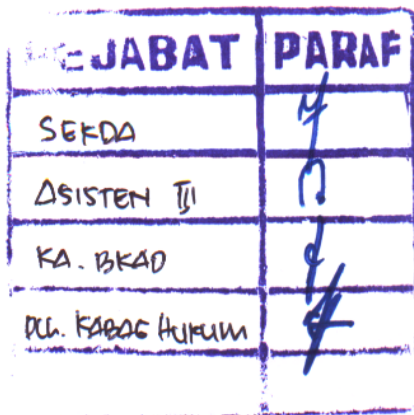 PEJABAT PARAF
SEKDA
ASISTEN III
KA. BKAD
PLh. KABAG HUKUM